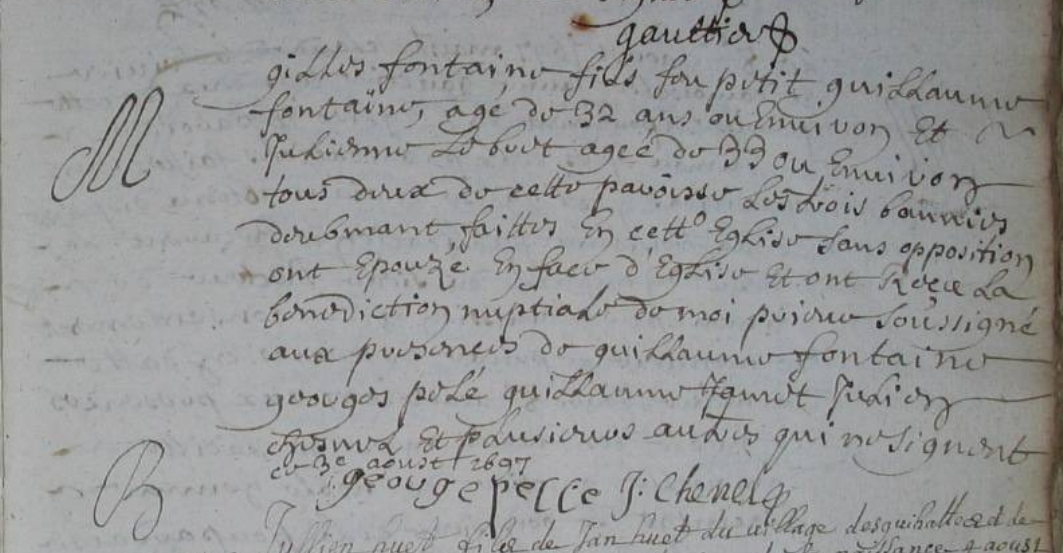 gaultier
M
gilles fontaine fils feu petit guillaume
fontaine, agé de 32 ans ou Environ Et
Julienne Lebret ageé de 33 ou Environ
tous deux de cette paroisse Les trois bannies
deubmant faittes En cette Eglise sans opposition
ont Epouzé En face d'Eglise Et ont Reçeu La
benediction nuptiale de moi prieur soussigné
aux presences de guillaume fontaine
georges pelé guillaume Julien
chesnel Et plusieurs autres qui ne signent
ce 3e aoust 1697
george pellé J: Chenel
B
Jullien huet fils de Jan huet du village de
aoust